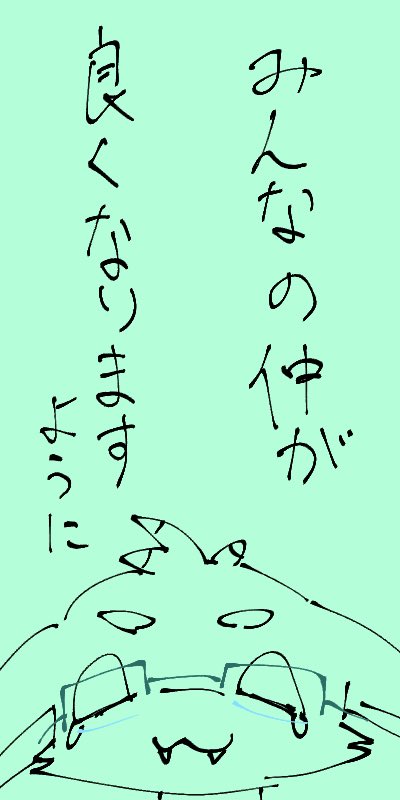 みんなの仲が
良くなります
ように